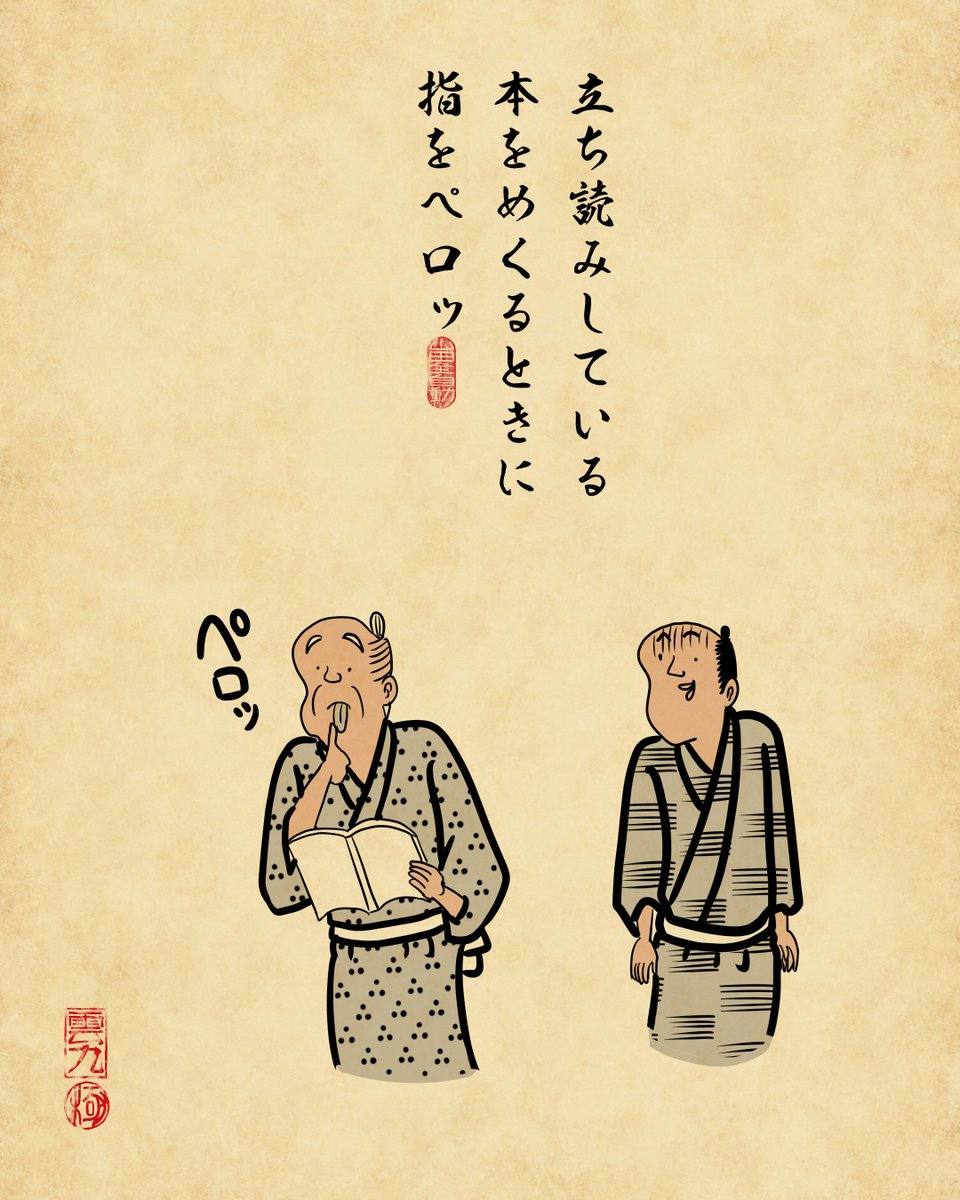 立ち読みしている
本をめくるときに
指をペロッ
ペロッ